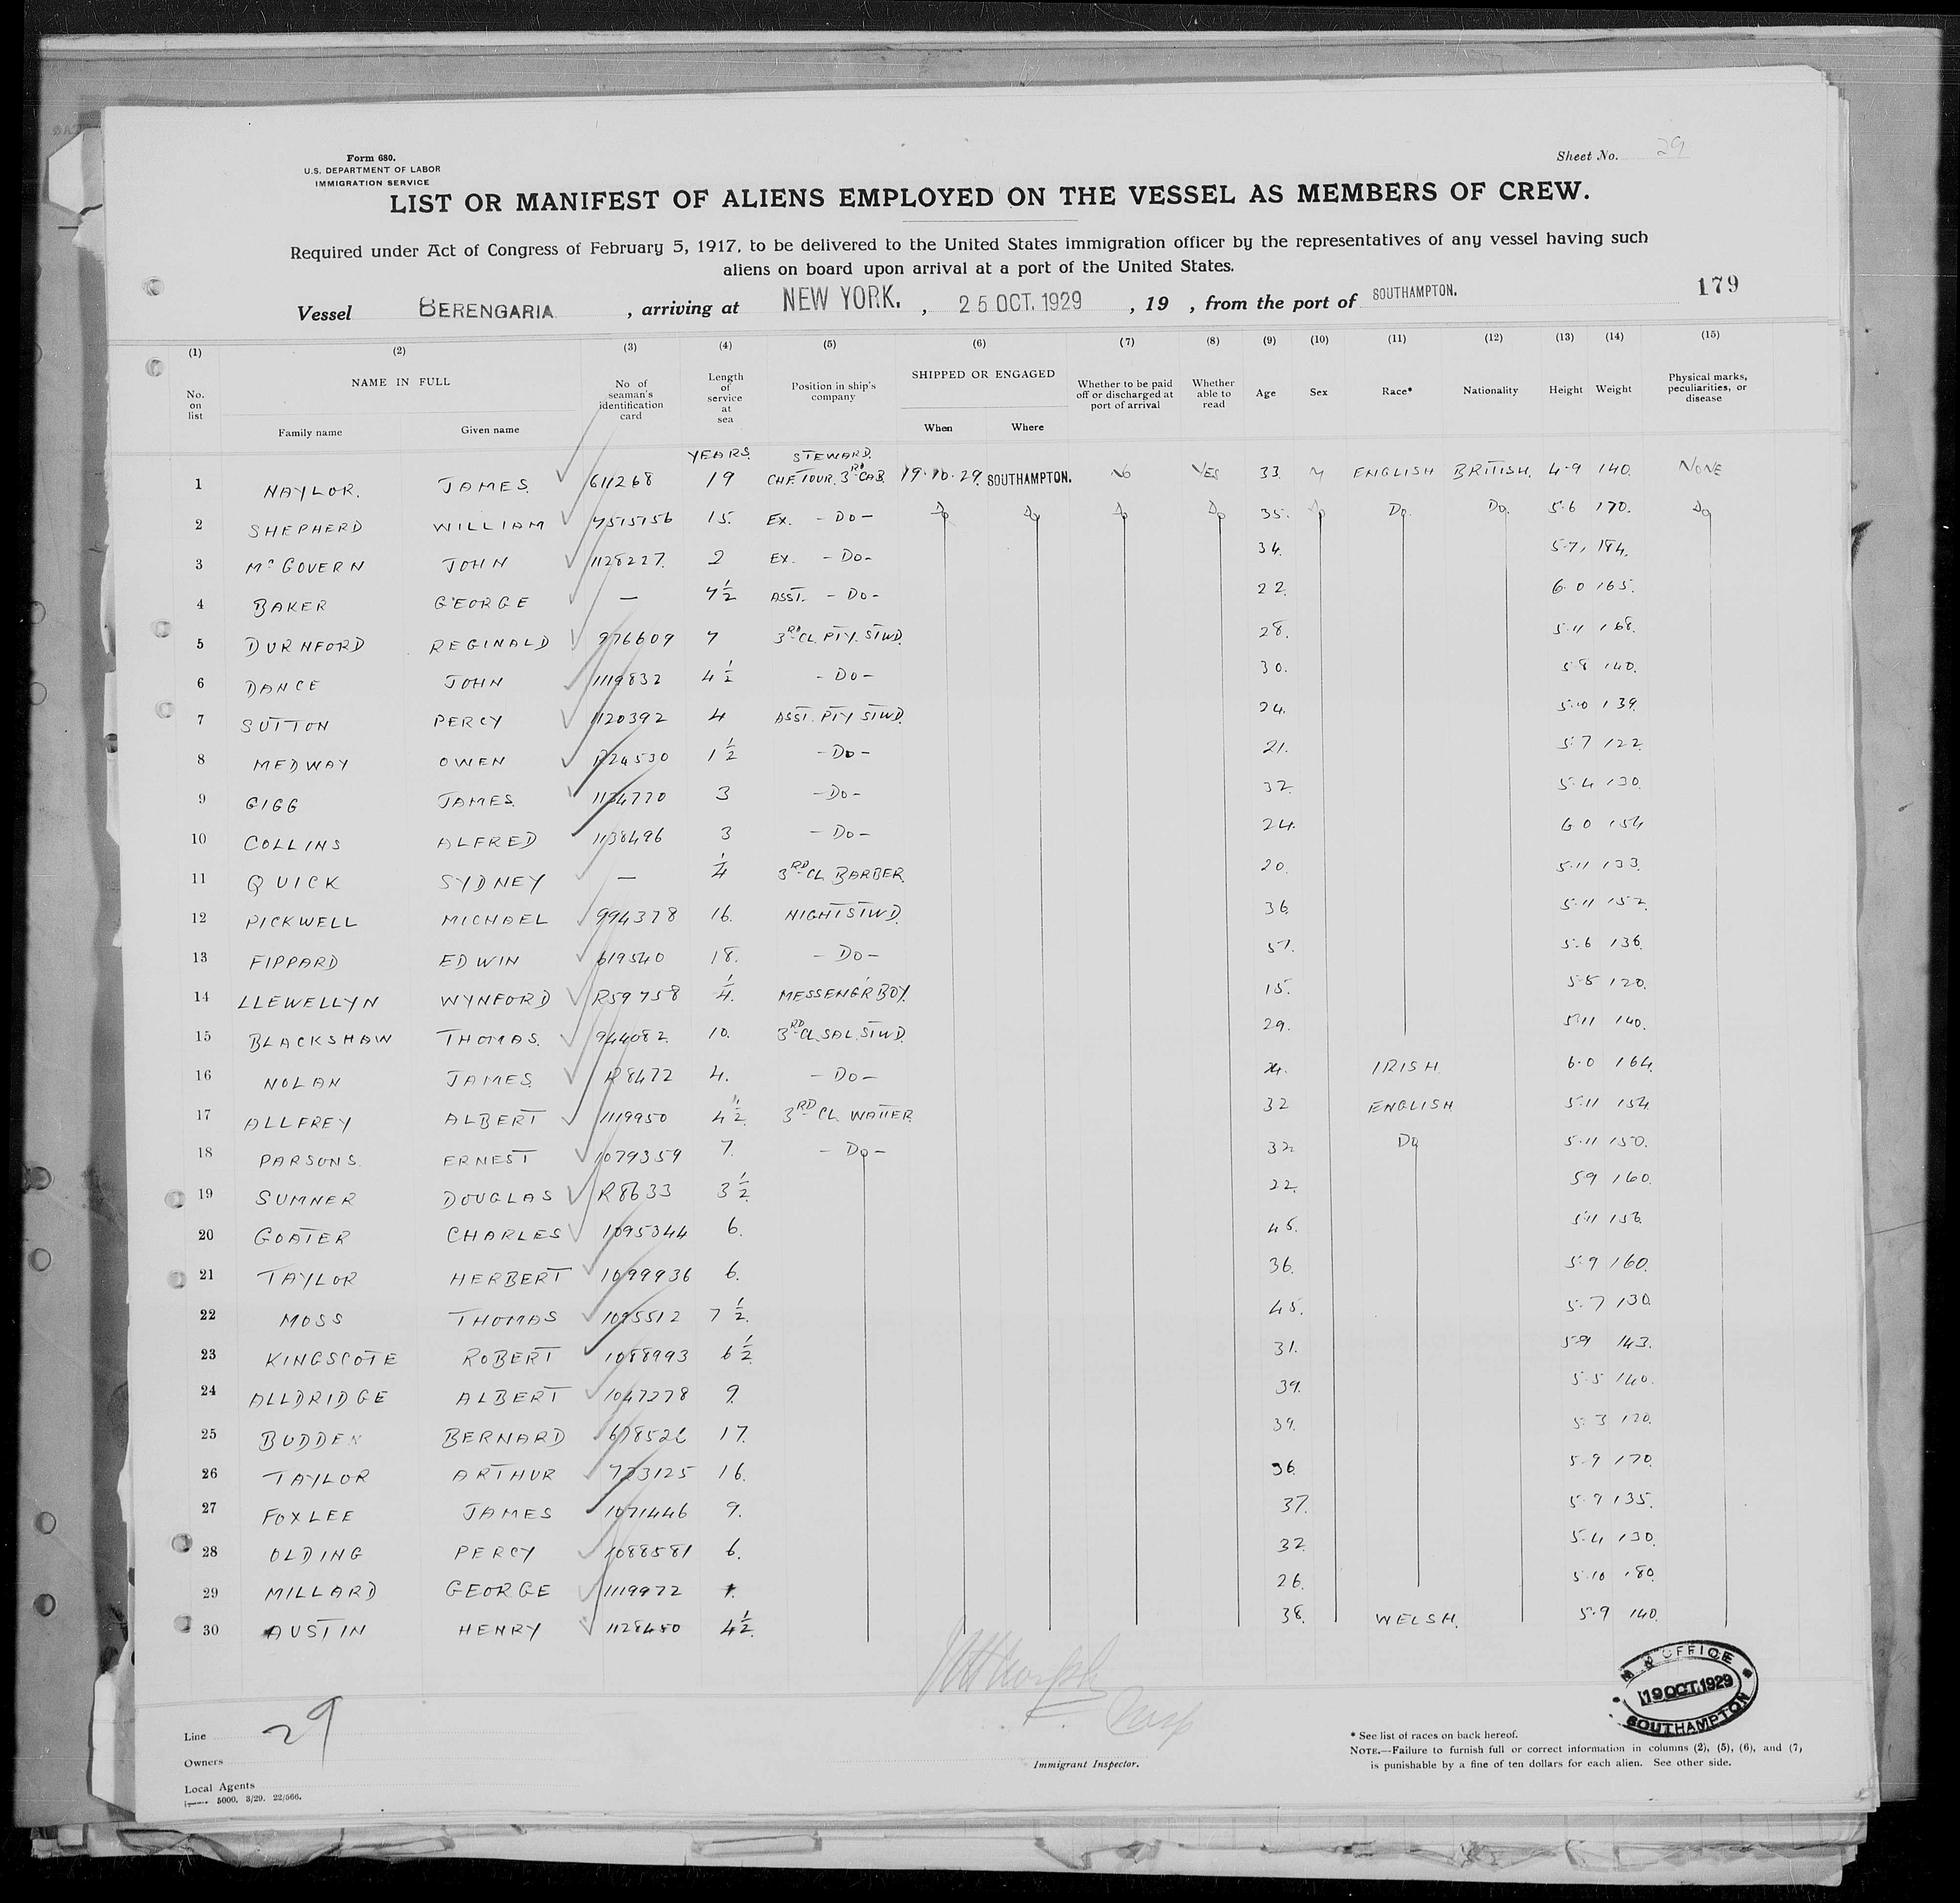 Form 680.
U.S. DEPARTMENT OF LABOR
IMMIGRATION SERVICE
Sheet No. 29
LIST OR MANIFEST OF ALIENS EMPLOYED ON THE VESSEL AS MEMBERS OF CREW.
Required under Act of Congress of February 5, 1917, to be delivered to the United States immigration officer by the representatives of any vessel having such
aliens on board upon arrival at a port of the United States.
179
Vessel BERENGARIA , arriving at NEW YORK. , 25 OCT. 1929 , 19 , from the port of SOUTHAMPTON.
(1) (2) (3) (4) (5) (6) (7) (8) (9) (10) (11) (12) (13) (14) (15)
No. on list NAME IN FULL Family name Given name No of seaman's identification card Length of service at sea Position in ship's company SHIPPED OR ENGAGED When Where Whether to be paid off or discharged at port of arrival Whether able to read Age Sex Race* Nationality Height Weight Physical marks, peculiarities, or disease
YEARS. STEWARD.
1 NAYLOR. JAMES. 611268 19 CHF. TOUR. 3RD CAB. 19.10.29. SOUTHAMPTON. NO YES 33. M ENGLISH BRITISH. 4.9 140. NONE
2 SHEPHERD WILLIAM 15. EX. - DO - Do Do Do Do 35. Do Do. Do. 5.6 170. Do
3 McGOVERN JOHN 1128227. 2 EX. - DO - 34. 5.7. 184.
4 BAKER GEORGE — 7½ ASST. - DO - 22. 6.0 165.
5 DURNFORD REGINALD 976609 7 3RD CL. PTY. STWD. 28. 5.11 168.
6 DANCE JOHN 1119832 4½ - DO - 30. 5.8 140.
7 SUTTON PERCY 1120392 4 ASST. PTY STWD. 24. 5.10 139.
8 MEDWAY OWEN R24530 1½ - DO - 21. 5.7 122.
9 GIGG JAMES. 1134770 3 - DO - 32. 5.4 130.
10 COLLINS ALFRED 1138496 3 - DO - 24. 6.0 154
11 QUICK SYDNEY — ¼ 3RD CL. BARBER. 20. 5.11 133.
12 PICKWELL MICHAEL 994378 16. NIGHT STWD. 36. 5.11 152.
13 FIPPARD EDWIN 619540 18. - DO - 51. 5.6 136.
14 LLEWELLYN WYNFORD R59758 ¼. MESSENGR BOY. 15. 5.5 120.
15 BLACKSHAW THOMAS. 944082. 10. 3RD CL. SAL. STWD. 29. 5.11 140.
16 NOLAN JAMES. R8472 4. - DO - IRISH. 6.0 164.
17 ALLFREY ALBERT 1119950 4½. 3RD CL. WAITER. 32 ENGLISH 5.11 154
18 PARSONS. ERNEST 1079359 7. - DO - 32 Do 5.11 150.
19 SUMNER DOUGLAS R8633 3½. 22. 5.9 160.
20 GOATER CHARLES 1095344 6. 45. 5.11
21 TAYLOR HERBERT 1099936 6. 36. 5.9 160.
22 MOSS THOMAS 1095512 7½. 45. 5.7 130.
23 KINGSCOTE ROBERT 1088993 6½. 31. 5.9 143.
24 ALLDRIDGE ALBERT 1047278 9. 39. 5.5 140.
25 BUDDEN BERNARD 17. 39. 5.3 120.
26 TAYLOR ARTHUR 723125 16. 36. 5.9 170.
27 FOXLEE JAMES 1071446 9. 37. 5.9 135.
28 OLDING PERCY 1088581 6. 32. 5.4 130.
29 MILLARD GEORGE 1119972 26. 5.10 180.
30 AUSTIN HENRY 1128480 4½. 38. WELSH. 5.9 140.
OFFICE
19 OCT. 1929
SOUTHAMPTON
Line 29
Owners
Local Agents
5000. 3/29. 22/566.
Immigrant Inspector.
* See list of races on back hereof.
NOTE.—Failure to furnish full or correct information in columns (2), (5), (6), and (7,
is punishable by a fine of ten dollars for each alien. See other side.